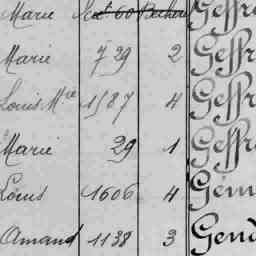 Marie Sect 60 Geffr
Marie 729 2 Geffr
Louis Mce 1587 4 Geffr
Marie 29 1 Geffr
Louis 1606 4 Gém
Amand 1138 3 Gend